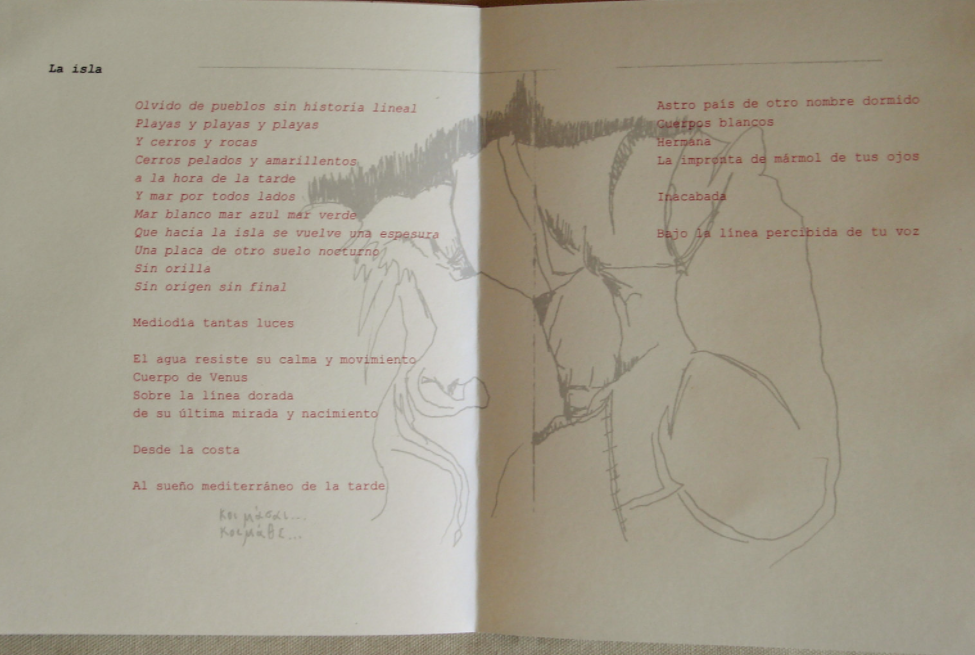 La isla
Olvido de pueblos sin historia lineal
Playas y playas y playas
Y cerros y rocas
Cerros pelados y amarillentos
a la hora de la tarde
Y mar por todos lados
Mar blanco mar azul mar verde
Que hacia la isla se vuelve una espesura
Una placa de otro suelo nocturno
Sin orilla
Sin origen sin final
Mediodía tantas luces
El agua resiste su calma y movimiento
Cuerpo de Venus
Sobre la línea dorada
de su última mirada y nacimiento
Desde la costa
Al sueño mediterráneo de la tarde
Astro país de otro nombre dormido
Cuerpos blancos
Hermana
La impronta de mármol de tus ojos
Inacabada
Bajo la línea percibida de tu voz